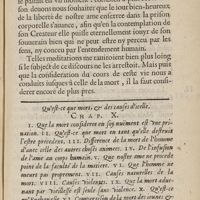 donc nous souhaiter que le iour bien-heureux
de la liberté de nostre ame enserree dans la prison
corporelle s'auance, afin qu'en la contemplation de
son Createur elle puisse eternellement iouyr de son
souuerain bien qui ne peut estre apperceu par les
sens, ny conceu par l'entendement humain.
Telles meditations me rauiroient bien plus long
si le subject de ce discours ne les arrestoit. Mais
puis que la consideration du cours de ceste vie nous a
conduits iusques à celle de la mort, il la faut consi-
derer encore de plus pres.
Qu'est-ce que mort, & des causes d'icelle.
CHAP. X.
I. Que la mort consideree en soy mesme est vne pri-
uation. II. Qu'est-ce que mort en tant qu'elle destruit
l'estre precedent. III. Difference de la mort de l'homme
d'auec celle des autres choses animees. IV. De l'infusion
de l'ame au corps humain. V. Que nostre ame ne procede
point de la faculté de la matiere. VI. Que l'homme ne
meurt pas proprement. VII. Causes naturelles de la
mort. VIII. Causes violentes. IX. Que la mort adue-
nant par vieillesse est seule sans violence. X. Qu'est-ce
XI. Comparaison de la mort des ieunes &